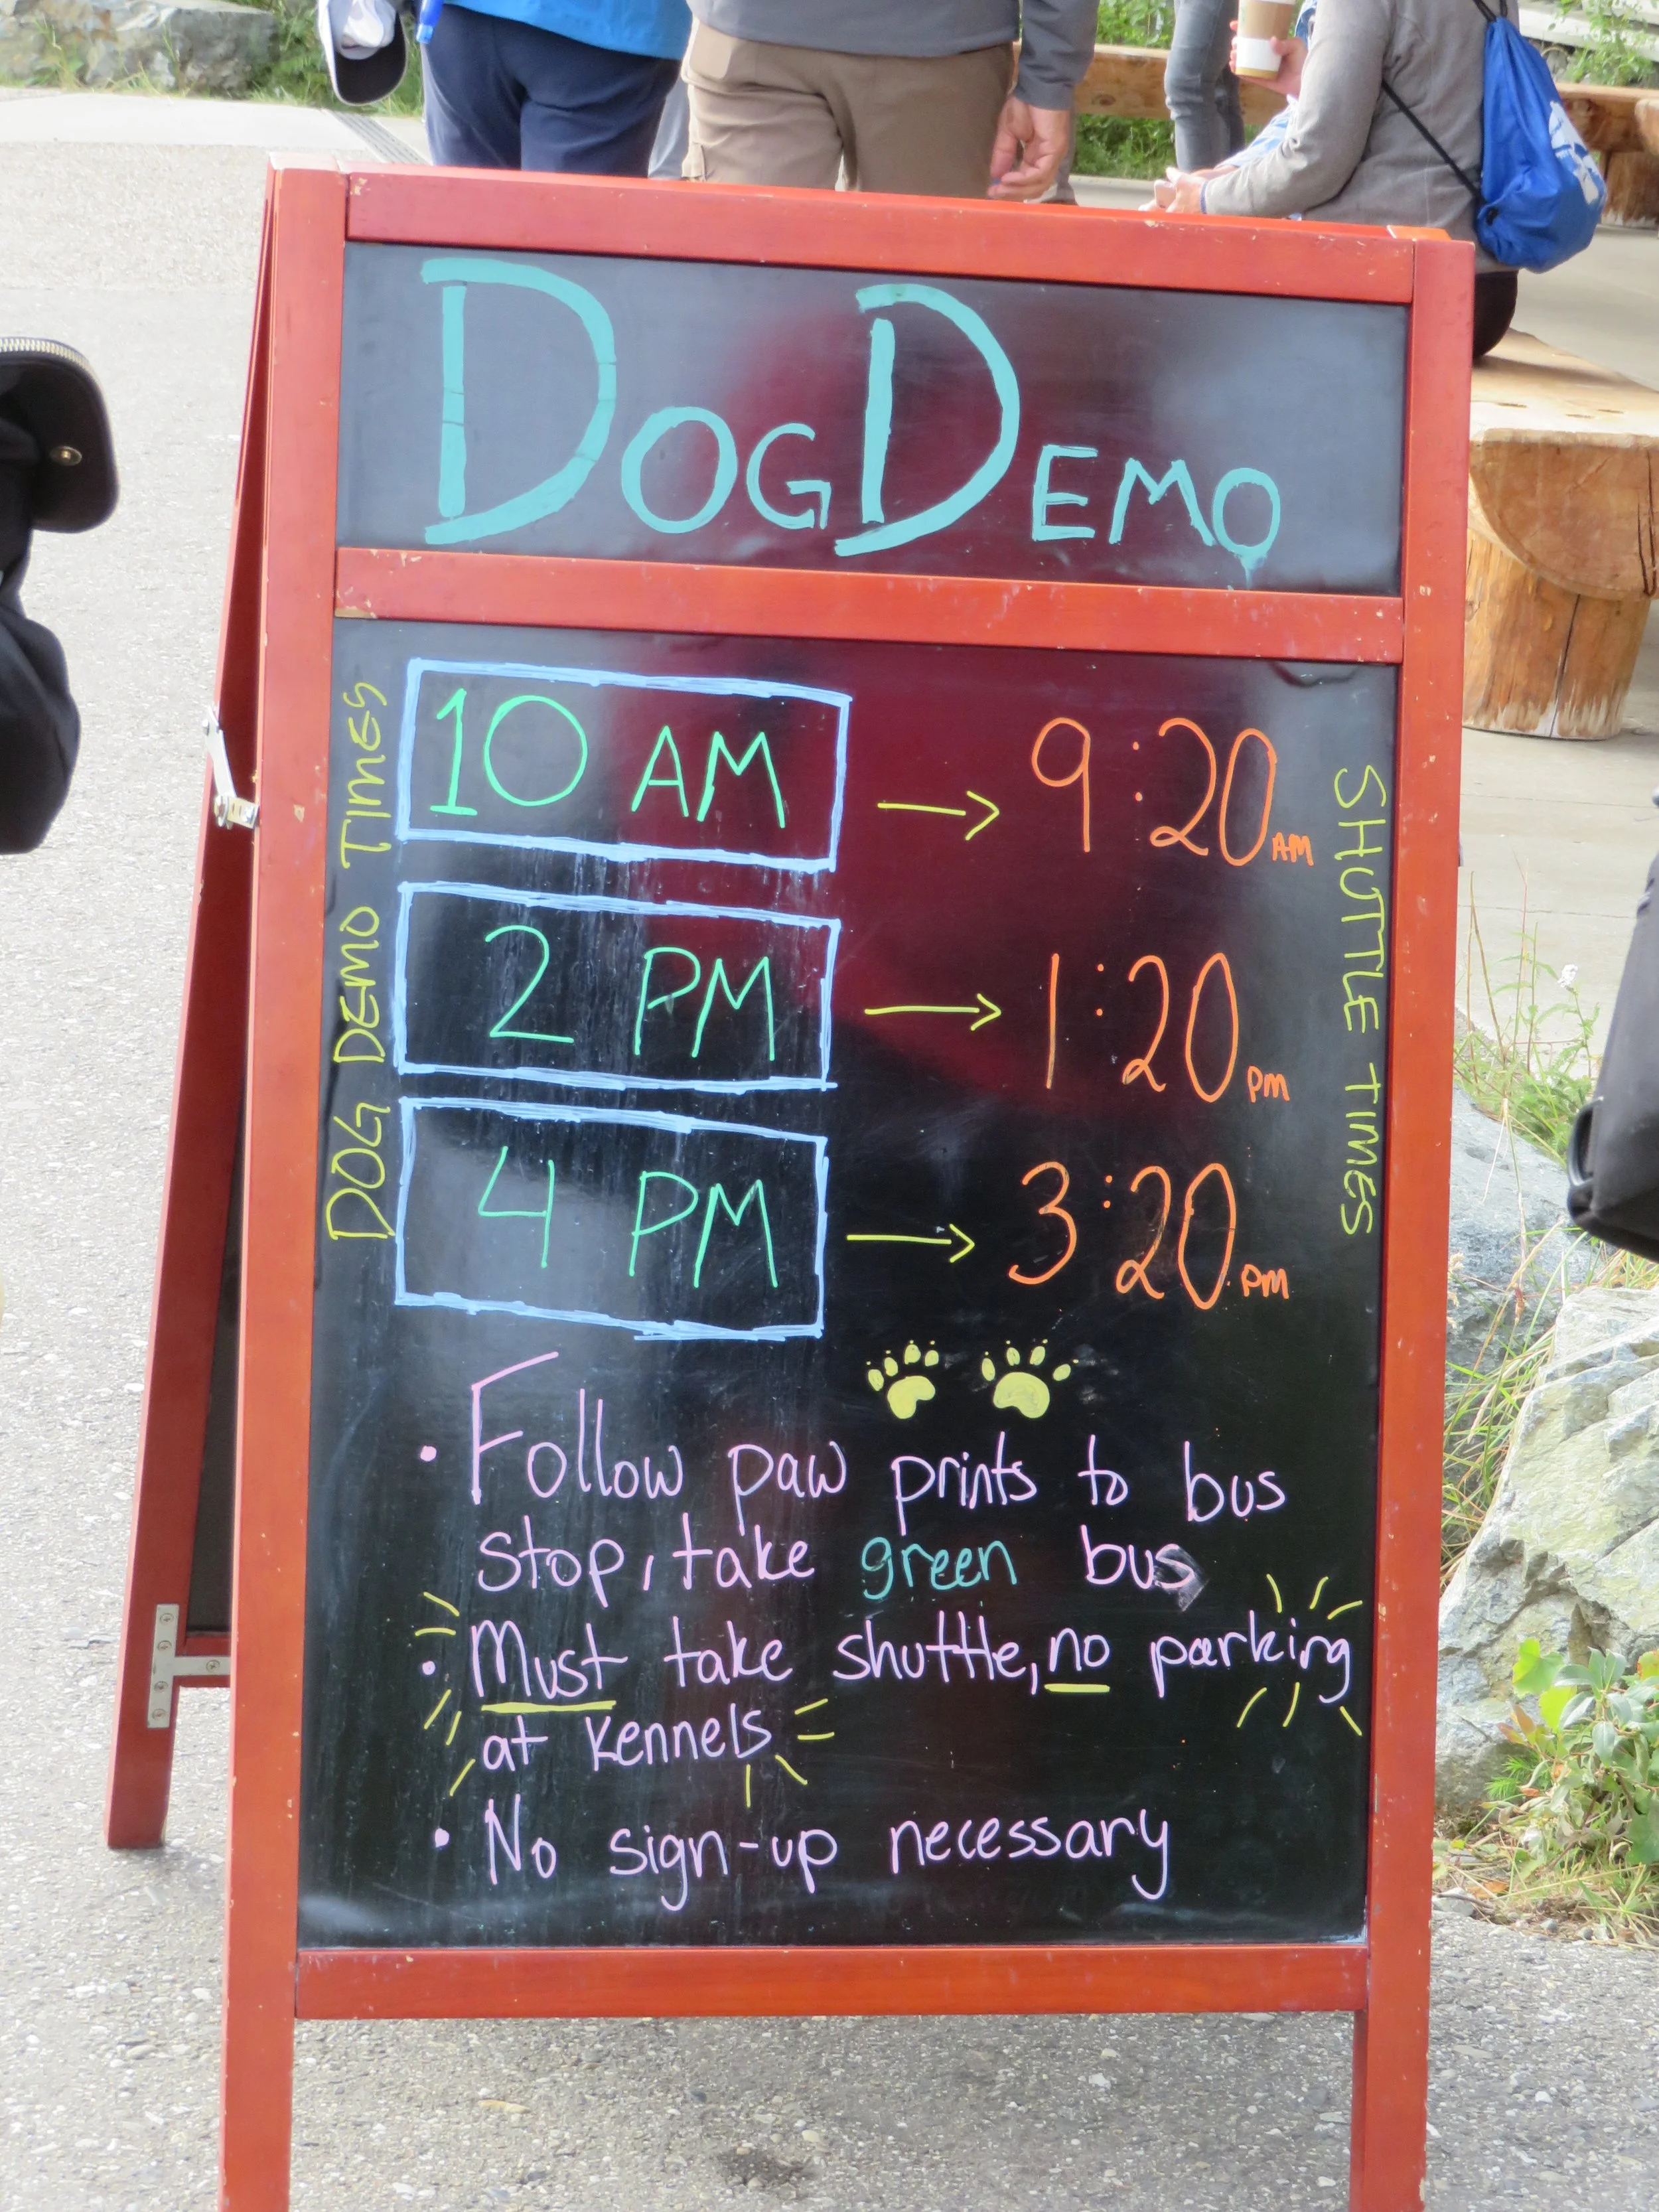 DOG DEMO
DOG DEMO TIMES
SHUTTLE TIMES
10 AM → 9:20 AM
2 PM → 1:20 PM
4 PM → 3:20 PM
• Follow paw prints to bus
stop, take green bus
• Must take shuttle, no parking
at kennels
• No sign-up necessary